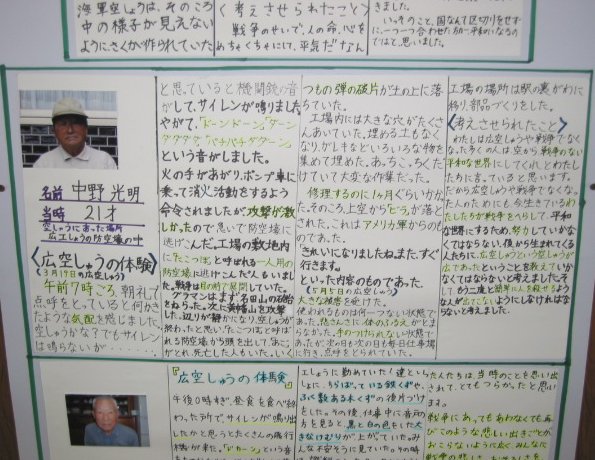 海軍空しゅうは、そのころ
中の様子が見えない
ように、さくが作られていた
〈考えさせられたこと〉
戦争のせいで、人の命、心を
めちゃくちゃにして、平気だなん
きました。
いっそのこと、国なんて区切りをせず
に、一つ一つ合わせた方が、平和になるの
ではと、思いました。
名前 中野 光明
当時 21才
空しゅうにあった場所
広工しょうの防空壕の中
〈広空しゅうの体験〉
(3月19日の広空しゅう)
午前7時ごろ、朝礼で
点呼をとっていると何か
たような気配を感じました
空しゅうかな?でもサイレン
は鳴らないが・・・・・
と思っていると機関銃の音
がして、サイレンが鳴りました
やがて、「ドーンドーン」「ダーン
という音がしました。
火の手があがり、ポンプ車に
乗って消火活動をするよう
命令されましたが、攻撃が激
しかったので思いで防空壕に
逃げこんだ。工場の敷地内
に「たこつぼ」と呼ばれる一人用の
防空壕に逃げこんだ人もいまし
た。戦争は目の前で展開していた。
グラマンはまず名田山の砲台
をねらった。次に黄幡山を攻撃
した。辺りが静かになり、空しゅうが
終わった、と思い、「たこつぼ」と呼ば
れる防空壕から頭を出して、あご
がとれ、死亡した人もいた。いく
つもの弾の破片が土の上に落
ちていた。
工場内には大きな穴がたくさ
んあいていた。埋める土もなく
なり、がれきなどいろいろな物を
集めて埋めた。あっちこっちくだ
けていて大変な作業だった。
修理するのに1ヶ月ぐらいかかっ
た。そのころ、上空から「ビラ」が落と
された、これはアメリカ軍からのも
のであった。
「きれいになりましたね。また、すぐ
行きます。」
といった内容のものであった。
(5月5日の広空しゅう)
大きな被害を受けた。
使われるものは何一つない状態で
あった。恐さんに体のふるえがとま
らなかった。手のつけられない状態で
あったが、次の日も次の日も毎日仕事場
に行き、点呼をとられていた。
工場の場所は駅の裏がわに
移り、部品づくりをした。
〈考えさせられたこと〉
わたしは広空しゅうや戦争でなく
なった多くの人は、空から戦争のない
平和な世界にしてくれ、とわたし
たちに言っていると思います。
だから広空しゅうや戦争でなくなった
人のためにも、今生きているわ
たしたちが戦争をへらして、平和
な世界にするため、努力していかな
くてはならない。僕から生まれてくる
人たちに、広空しゅうという空しゅうが
広であったということを教えていか
なくてはならないと考えました。そ
して、もう二度と簡単に人を殺せるよう
な人が出てこないようにしなければな
らないと考えました。
『広空しゅうの体験』
午後0時ごろ、昼食を食べ終
わった辺りで、サイレンが鳴り出
したかと思うとたくさんの飛行
機が来た。「ドカーン」という音
工しょうに勤めていく達といっ
しょに、ちらばっている鉄くずや、
ふく数ある木くずの後片づけ
をした。その後、仕事中に音の
方を見ると、黒と白色をした大
きなけむりが上がっていた。み
んな不安そうに見ていた。その時
たんたちは、当時のことを思い出
されて、とてもつらかったと思い
ます。
戦争にあってもあわなくても再
びこのような悲しい出きごとが、
おこらないように広く、みんなに